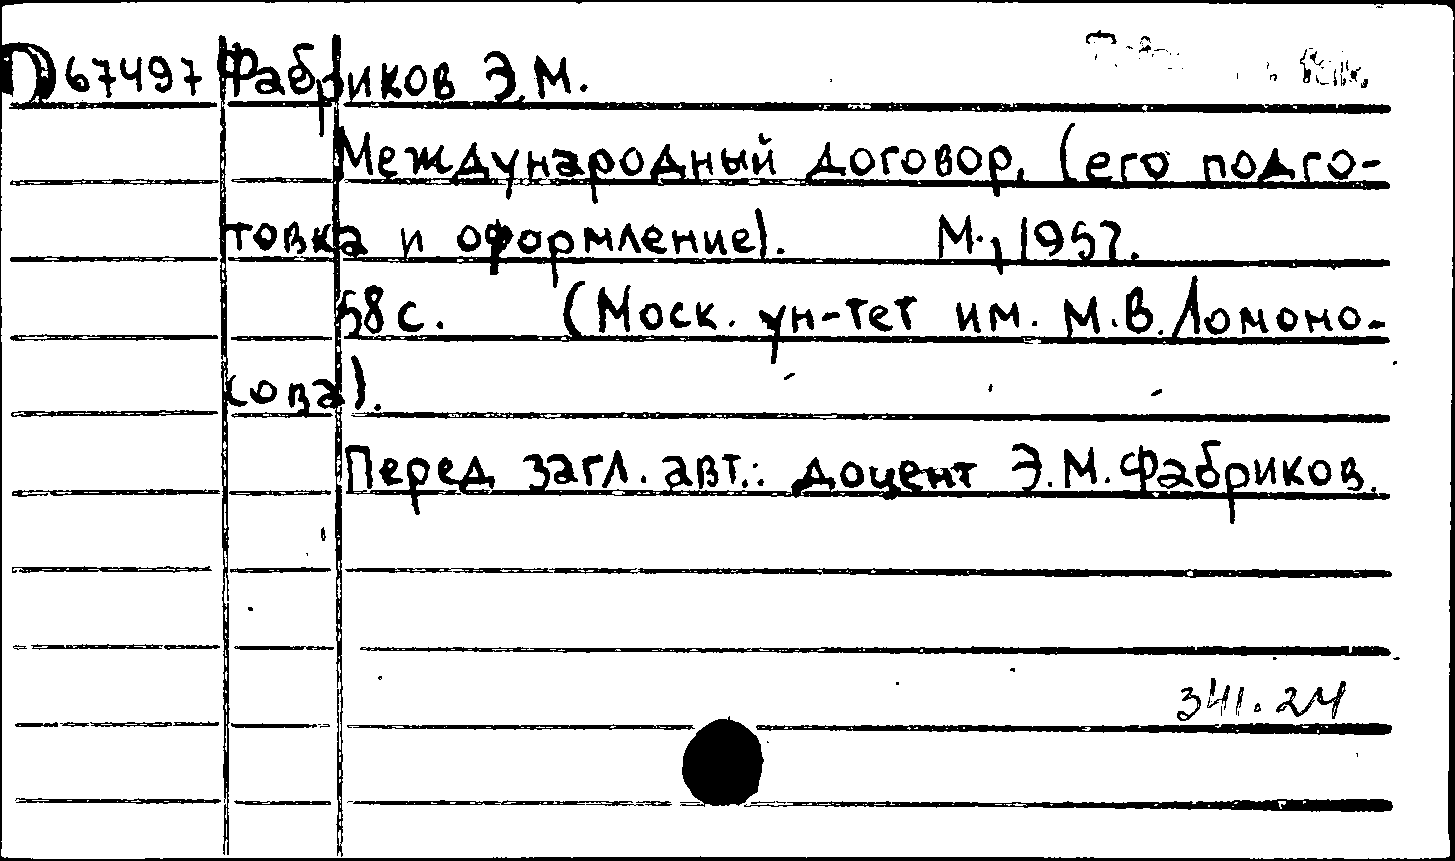 67497 Фабриков Э.М.
Международный договор. (его подго-
товка и оформление). М., 1957.
58 с. (Моск. ун-тет им. М.В. Ломоно-
сова).
Перед загл. авт.: доцент Э.М. Фабриков.
341.24